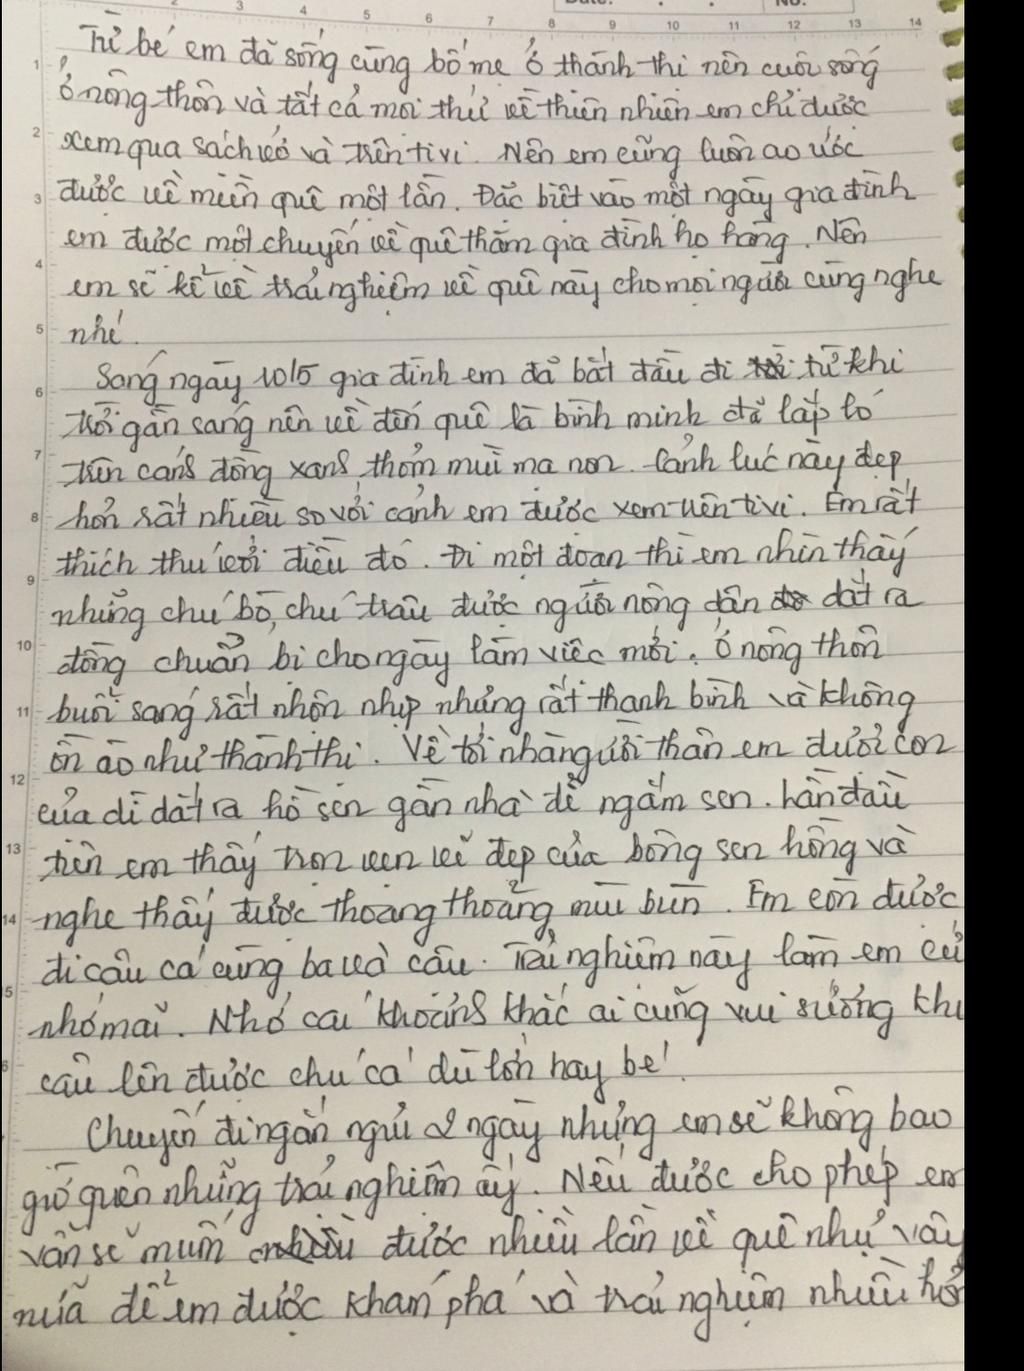 Date: No.
2 3 4 5 6 7 8 9 10 11 12 13 14
Từ bé em đã sống cùng bố mẹ ở thành thị nên cuộc sống
ở nông thôn và tất cả mọi thứ về thiên nhiên em chỉ được
xem qua sách vở và trên tivi. Nên em cũng luôn ao ước
được về miền quê một lần. Đặc biệt vào một ngày gia đình
em được một chuyến về quê thăm gia đình họ hàng. Nên
em sẽ kể về trải nghiệm về quê này cho mọi người cùng nghe
nhé.
Sáng ngày 10/5 gia đình em đã bắt đầu đi từ khi
trời gần sáng nên về đến quê là bình minh đã lấp ló
trên cánh đồng xanh, thơm mùi mạ non. Cảnh lúc này đẹp
hơn rất nhiều so với cảnh em được xem trên tivi. Em rất
thích thú với điều đó. Đi một đoạn thì em nhìn thấy
những chú bò, chú trâu được người nông dân dắt ra
đồng chuẩn bị cho ngày làm việc mới. Ở nông thôn
buổi sáng rất nhộn nhịp nhưng rất thanh bình và không
ồn ào như thành thị. Về tới nhà người thân em được con
của dì dắt ra hồ sen gần nhà để ngắm sen. Lần đầu
tiên em thấy trọn vẹn vẻ đẹp của bông sen hồng và
nghe thấy được thoang thoảng mùi bùn. Em còn được
đi câu cá cùng ba và cậu. Trải nghiệm này làm em cứ
nhớ mãi. Nhớ cái khoảnh khắc ai cũng vui sướng khi
câu lên được chú cá dù lớn hay bé!
Chuyến đi ngắn ngủi 2 ngày nhưng em sẽ không bao
giờ quên những trải nghiệm ấy. Nếu được cho phép em
vẫn sẽ muốn được nhiều lần về quê như vậy
nữa để em được khám phá và trải nghiệm nhiều hơ